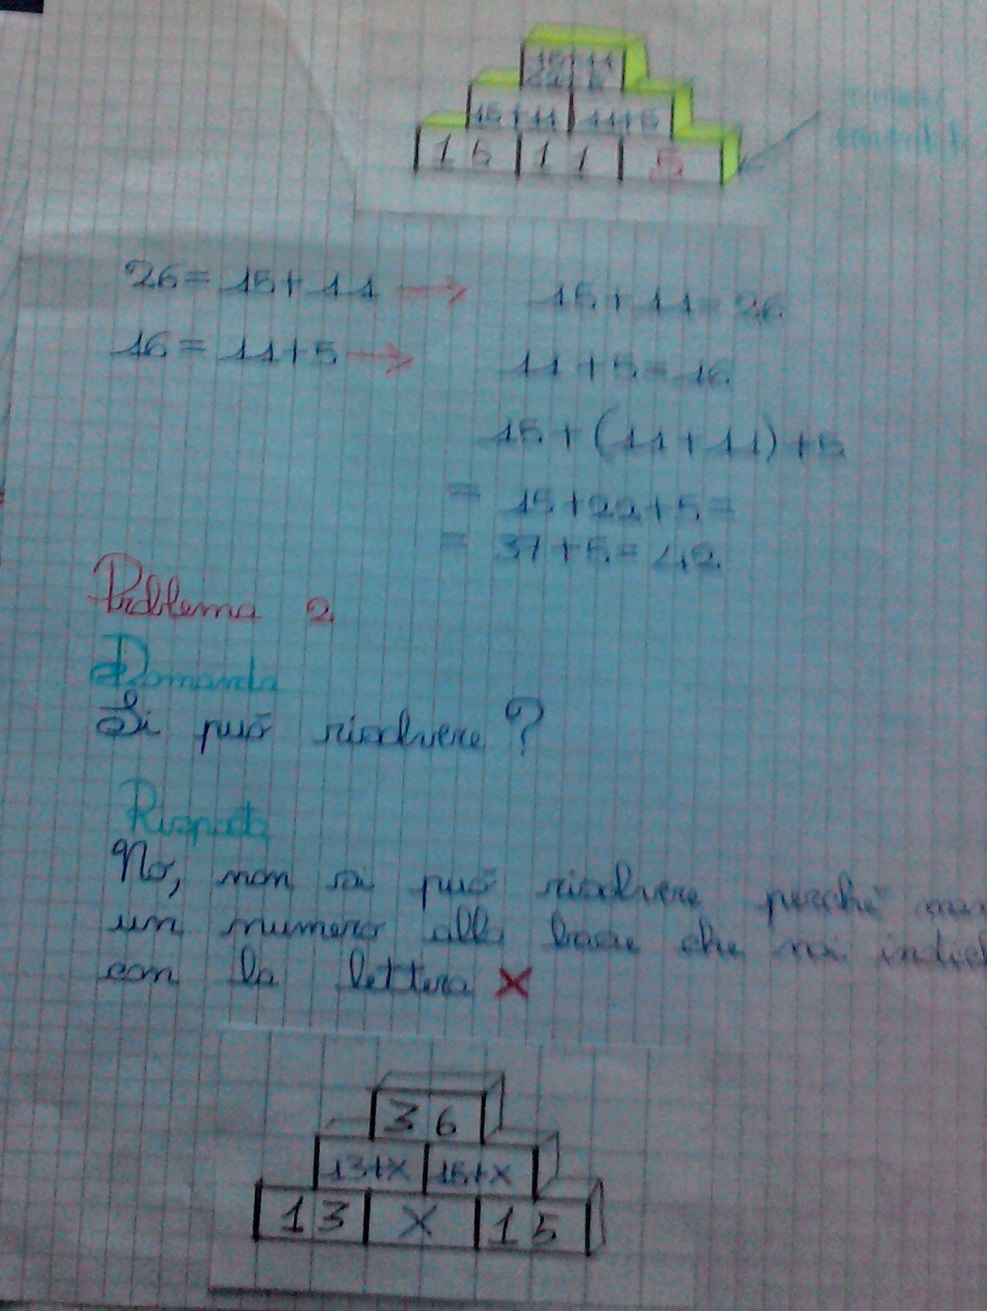 15+11
15+11 11+5
15 11 5
26 = 15 + 11 → 15 + 11 = 26
16 = 11 + 5 → 11 + 5 = 16
15 + (11 + 11) + 5
= 15 + 22 + 5 =
= 37 + 5 = 42
Problema 2
Domanda
Si può risolvere?
Risposta
No, non si può risolvere perché
un numero alla base che noi
con la lettera X
36
13+x 15+x
13 X 15